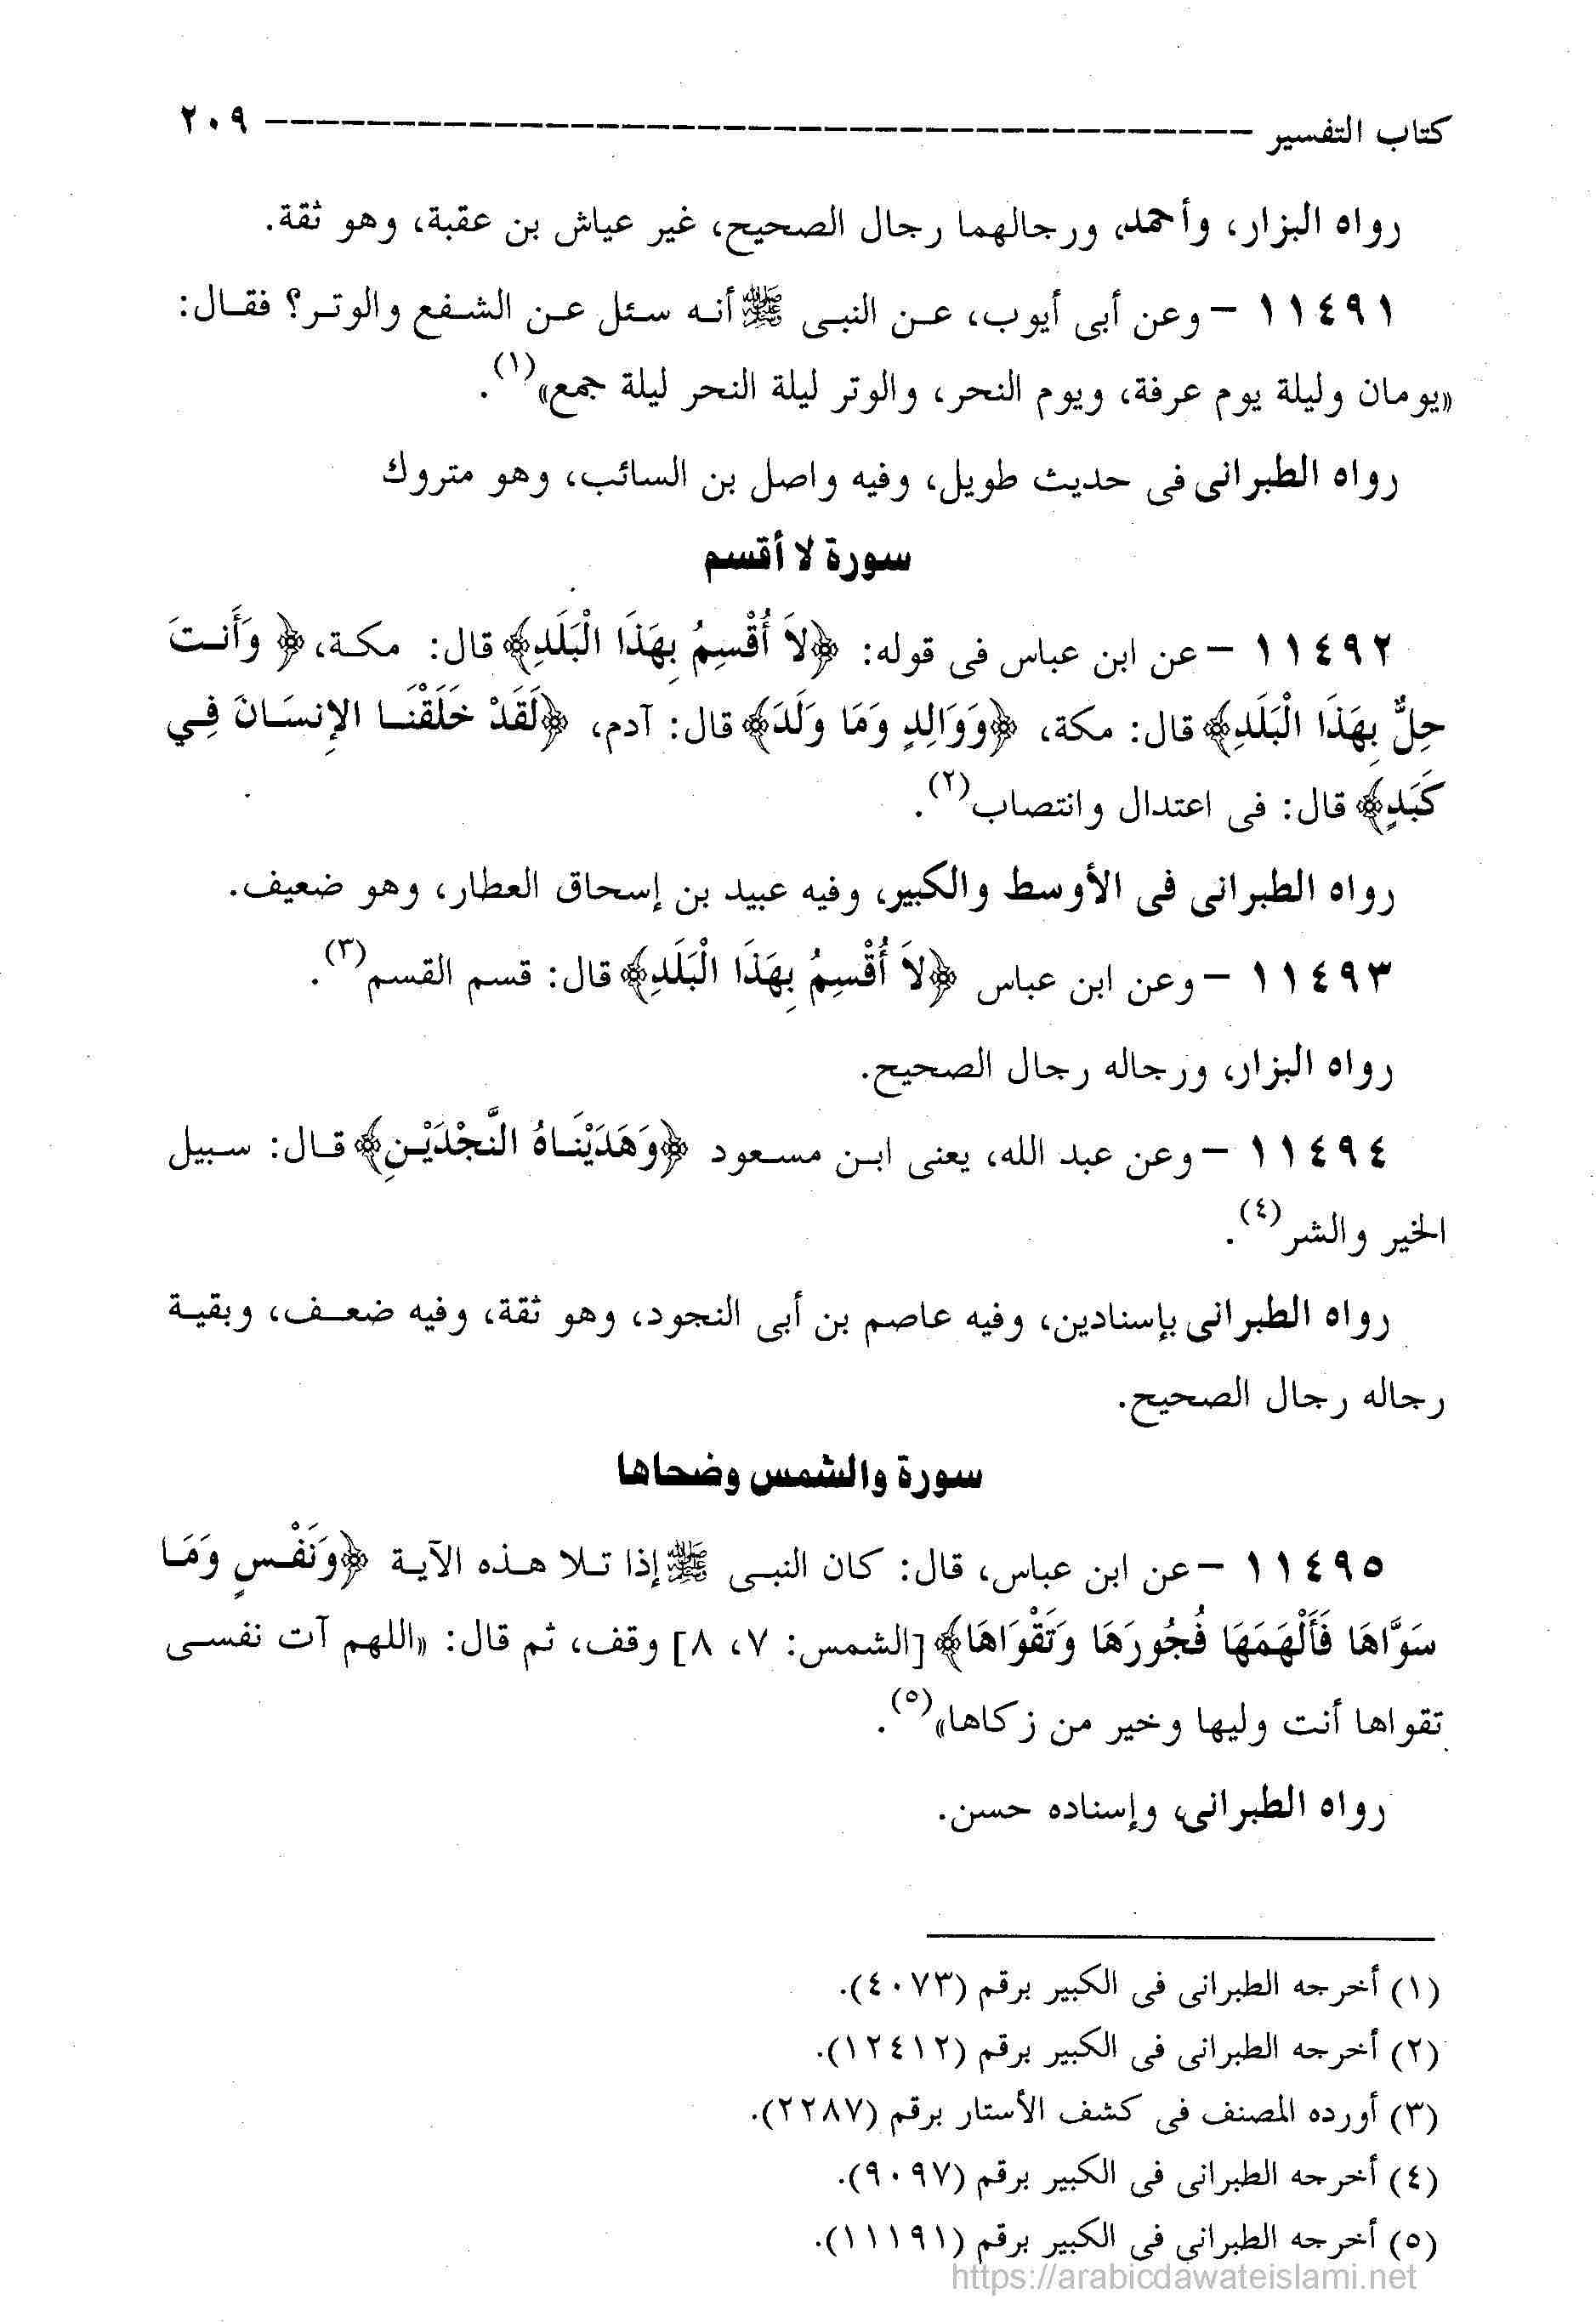 كتاب التفسير ـــــــــــــــــــــــــــــــــــــــــ ٢٠٩
رواه البزار، وأحمد، ورجالهما رجال الصحيح، غير عياش بن عقبة، وهو ثقة.
١١٤٩١ – وعن أبى أيوب، عن النبى ﷺ أنه سئل عن الشفع والوتر؟ فقال:
«يومان وليلة يوم عرفة، ويوم النحر، والوتر ليلة النحر ليلة جمع»(١).
رواه الطبرانى فى حديث طويل، وفيه واصل بن السائب، وهو متروك
سورة لا أقسم
١١٤٩٢ – عن ابن عباس فى قوله: ﴿لاَ أُقْسِمُ بِهَذَا الْبَلَدِ﴾ قال: مكة، ﴿وَأَنتَ
حِلٌّ بِهَذَا الْبَلَدِ﴾ قال: مكة، ﴿وَوَالِدٍ وَمَا وَلَدَ﴾ قال: آدم، ﴿لَقَدْ خَلَقْنَا الإِنسَانَ فِي
كَبَدٍ﴾ قال: فى اعتدال وانتصاب(٢).
رواه الطبرانى فى الأوسط والكبير، وفيه عبيد بن إسحاق العطار، وهو ضعيف.
١١٤٩٣ – وعن ابن عباس ﴿لاَ أُقْسِمُ بِهَذَا الْبَلَدِ﴾ قال: قسم القسم(٣).
رواه البزار، ورجاله رجال الصحيح.
١١٤٩٤ – وعن عبد الله، يعنى ابن مسعود ﴿وَهَدَيْنَاهُ النَّجْدَيْنِ﴾ قال: سبيل
الخير والشر(٤).
رواه الطبرانى بإسنادين، وفيه عاصم بن أبى النجود، وهو ثقة، وفيه ضعف، وبقية
رجاله رجال الصحيح.
سورة والشمس وضحاها
١١٤٩٥ – عن ابن عباس، قال: كان النبى ﷺ إذا تلا هذه الآية ﴿وَنَفْسٍ وَمَا
سَوَّاهَا فَأَلْهَمَهَا فُجُورَهَا وَتَقْوَاهَا﴾ [الشمس: ٧، ٨] وقف، ثم قال: «اللهم آت نفسى
تقواها أنت وليها وخير من زكاها»(٥).
رواه الطبرانى، وإسناده حسن.
(١) أخرجه الطبرانى فى الكبير برقم (٤٠٧٣).
(٢) أخرجه الطبرانى فى الكبير برقم (١٢٤١٢).
(٣) أورده المصنف فى كشف الأستار برقم (٢٢٨٧).
(٤) أخرجه الطبرانى فى الكبير برقم (٩٠٩٧).
(٥) أخرجه الطبرانى فى الكبير برقم (١١١٩١).
https://arabicdawateislami.net